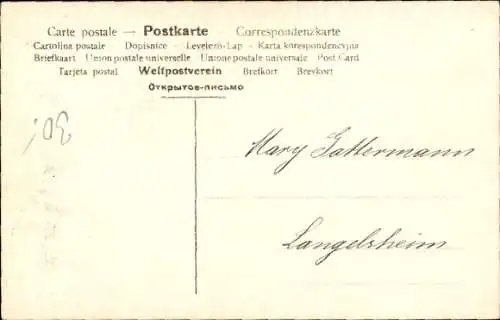 Carte postale — Postkarte Correspondenzkarte
Cartolina postale Dopisnice - Levelező-Lap - Karta korespondencyjna
Briefkaart Union postale universelle Unione postale universale Post Card
Tarjeta postal Weltpostverein Brefkort Brevkort
Открытое-письмо
30;
Mary Gattermann
Langelsheim